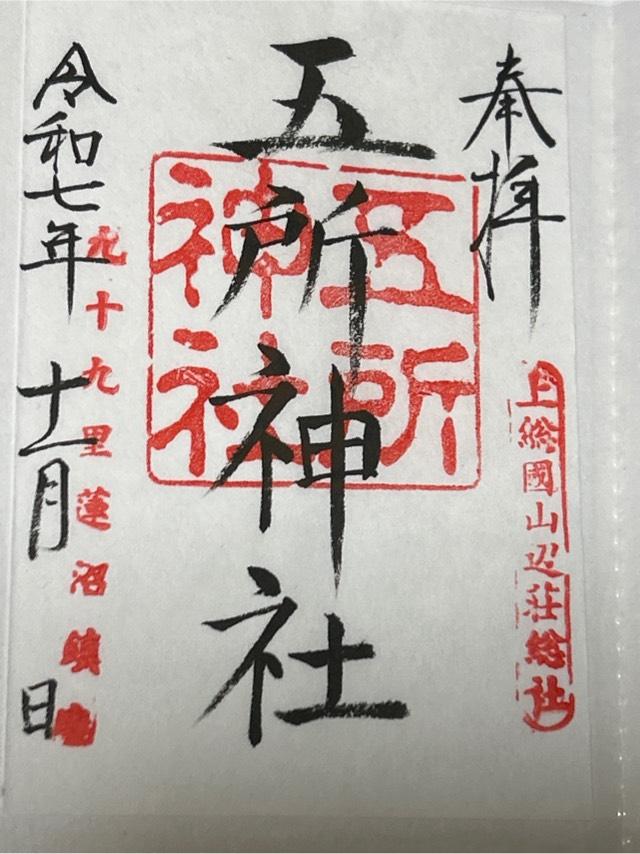 奉拝
上総國山辺荘総社
五所神社
五所
神社
九十九里蓮沼鎮
令和七年十一月 日